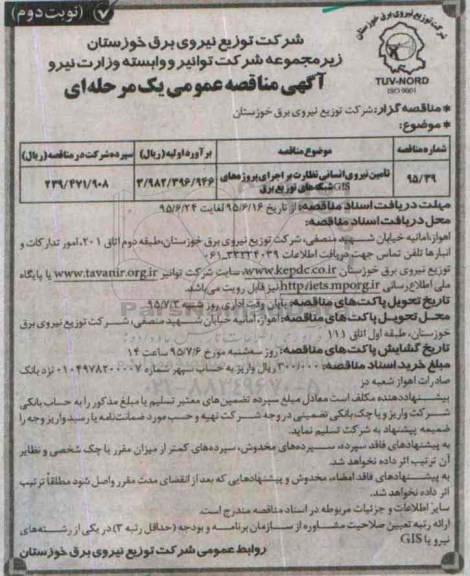 (نوبت دوم)
۷
شرکت توزیع نیروی برق خوزستان
TUV-NORD
ISO 9001
شرکت توزیع نیروی برق خوزستان
زیرمجموعه شرکت توانیر و وابسته وزارت نیرو
آگهی مناقصه عمومی یک مرحله‌ای
* مناقصه گزار: شرکت توزیع نیروی برق خوزستان
* موضوع:
شماره مناقصه موضوع مناقصه برآورد اولیه (ریال) سپرده شرکت در مناقصه (ریال)
۹۵/۳۹ تامین نیروی انسانی نظارت بر اجرای پروژه‌های GIS شبکه‌های توزیع برق ۳/۹۸۲/۳۹۶/۹۴۶ ۲۳۹/۴۷۱/۹۰۸
مهلت دریافت اسناد مناقصه: از تاریخ ۹۵/۶/۱۶ لغایت ۹۵/۶/۲۴
محل دریافت اسناد مناقصه:
اهواز، امانیه خیابان شهید منصفی، شرکت توزیع نیروی برق خوزستان، طبقه دوم اتاق ۲۰۱، امور تدارکات و
انبارها تلفن تماس جهت دریافت اطلاعات ۳۳۳۳۴۰۳۹-۰۶۱
توزیع نیروی برق خوزستان www.kepdc.co.ir، سایت شرکت توانیر www.tavanir.org.ir یا پایگاه
ملی اطلاع رسانی http://iets.mporg.ir نیز قابل رویت می‌باشد.
تاریخ تحویل پاکت‌های مناقصه: پایان وقت اداری روز شنبه ۹۵/۷/۳
محل تحویل پاکت‌های مناقصه: اهواز، امانیه خیابان شهید منصفی، شرکت توزیع نیروی برق
خوزستان، طبقه اول اتاق ۱۱۱
تاریخ گشایش پاکت‌های مناقصه: روز سه‌شنبه مورخ ۹۵/۷/۶ ساعت ۱۴
مبلغ خرید اسناد مناقصه: ۳۰۰/۰۰۰ ریال واریز به حساب سپهر شماره ۰۱۰۴۹۷۸۲۰۰۰۰۷ نزد بانک
صادرات اهواز شعبه دز
پیشنهاددهنده مکلف است معادل مبلغ سپرده تضمین‌های معتبر تسلیم یا مبلغ مذکور را به حساب بانکی
شرکت واریز و یا چک بانکی تضمینی در وجه شرکت تهیه و حسب مورد ضمانت‌نامه یا رسید واریز وجه را
ضمیمه پیشنهاد به شرکت تسلیم نماید.
به پیشنهادهای فاقد سپرده، سپرده‌های مخدوش، سپرده‌های کمتر از میزان مقرر یا چک شخصی و نظایر
آن ترتیب اثر داده نخواهد شد.
به پیشنهادهای فاقد امضاء، مخدوش و پیشنهادهایی که بعد از انقضای مدت مقرر واصل شود مطلقاً ترتیب
اثر داده نخواهد شد.
سایر اطلاعات و جزئیات مربوطه در اسناد مناقصه مندرج است.
ارائه رتبه تعیین صلاحیت مشاوره از سازمان برنامه و بودجه (حداقل رتبه ۳) در یکی از رشته‌های
نیرو یا GIS
روابط عمومی شرکت توزیع نیروی برق خوزستان